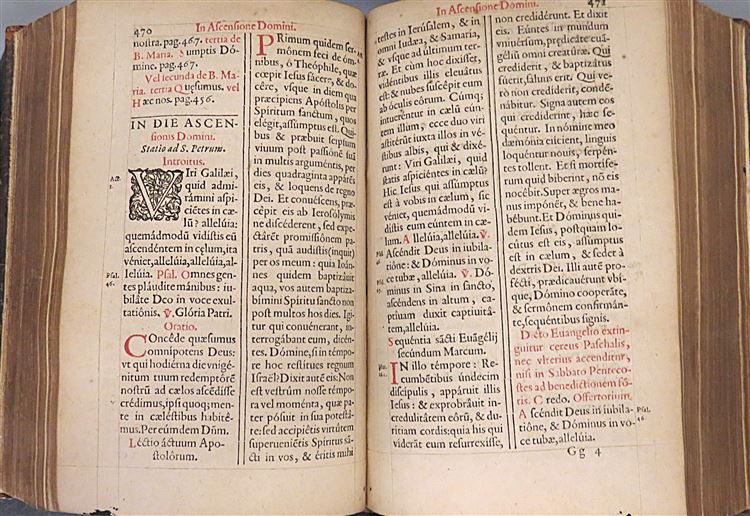 470
In Ascensione Domini.
nostra. pag. 467. tertia de
B. Maria. Sumptis Dó-
mine. pag. 467.
Vel secunda de B. Ma-
ria. tertia Quęsumus. vel
Hæc nos. pag. 456.
IN DIE ASCEN-
sionis Domini.
Statio ad S. Petrum.
Introitus.
Act. 1.
VIri Galilæi,
quid admi-
rámini aspi-
ciétes in cæ-
lū? allelúia:
quemadmodū vidistis eū
ascendéntem in cęlum, ita
véniet, allelúia, allelúia, al-
lelúia. Psal. Omnes gen-
Psal. 46.
tes pláudite mánibus: iu-
biláte Deo in voce exul-
tatiónis. ℣. Glória Patri.
Oratio.
COncéde quæsumus
omnípotens Deus:
vt qui hodiérna die vnigé-
nitum tuum redemptórē
nostrū ad cælos ascédisse
crédimus, ipsi quoq; men-
te in cæléstibus habité-
mus. Per eumdem Dñm.
Léctio áctuum Apo-
stolórum.
PRimum quidem ser-
mónem feci de óm-
nibus, ô Theóphile, quæ
cœpit Iesus fácere, & do-
cére, vsque in diem qua
præcípiens Apóstolis per
Spíritum sanctum, quos
elégit, assumptus est. Qui-
bus & præbuit seípsum
viuum post passiónē suā
in multis arguméntis, per
dies quadragínta apparēs
eis, & loquens de regno
Dei. Et conuéscens, præ-
cépit eis ab Ierosólymis
ne discéderent, sed expe-
ctárēt promissiónem pa-
tris, quā audístis (inquit)
per os meum: quia Ioán-
nes quidem baptizáuit
aqua, vos autem baptiza-
bímini Spíritu sancto non
post multos hos dies. Igi-
tur qui conuénerant, in-
terrogábant eum, dicén-
tes. Dómine, si in témpo-
re hoc restítues regnum
Israël? Dixit autē eis: Non
est vestrûm nosse témpo-
ra vel moménta, quæ pa-
ter pósuit in sua potestá-
te: sed accipiétis virtútem
superueniétis Spíritus sā-
cti in vos, & éritis mihi
In Ascensione Domini.
471
testes in Ierúsalem, & in
omni Iudæa, & Samaría,
& vsque ad últimum ter-
ræ. Et cùm hoc dixísset,
vidéntibus illis eleuátus
est: & nubes suscépit eum
ab óculis eórum. Cúmq;
intueréntur in cælū eún-
tem illum; ecce duo viri
astitérūt iuxta illos in vé-
stibus albis, qui & dixé-
runt: Viri Galilæi, quid
statis aspiciéntes in cælū?
Hic Iesus qui assúmptus
est à vobis in cælum, sic
véniet, quemádmodū vi-
dístis eum eúntem in cæ-
lum. Allelúia, allelúia. ℣.
Ascéndit Deus in iubila-
tióne: & Dóminus in vo-
ce tubæ, allelúia. ℣. Dó-
minus in Sina in sancto,
ascéndens in altum, ca-
ptíuam duxit captiuitá-
tem, allelúia.
Sequéntia sācti Euāgélij
secúndum Marcum.
IN illo témpore: Re-
cumbétibus úndecim
discípulis, appáruit illis
Iesus: & exprobráuit in-
credulitátem eórū, & du-
rítiam cordis: quia his qui
víderāt eum resurrexísse,
non credidérunt. Et dixit
eis. Eúntes in mundum
vniuérsum, prædicáte euā-
gélium omni creatúræ. Qui
credíderit, & baptizátus
fúerit, saluus erit. Qui ve-
rò non credíderit, condē-
nábitur. Signa autem eos
qui credíderint, hæc se-
quéntur. In nómine meo
dæmónia eiícient, linguis
loquéntur nouis, serpén-
tes tollent. Et si mortífe-
rum quid bíberint, nō eis
nocébit. Super ægros ma-
nus impónēt, & bene ha-
bébunt. Et Dóminus qui-
dem Iesus, postquam lo-
cútus est eis, assúmptus
est in cælum, & sedet à
dextris Dei. Illi autē pro-
fécti, prædicauérunt vbí-
que, Dómino cooperáte,
& sermónem confirmán-
te, sequéntibus signis.
Dicto Euangelio extin-
guitur cereus Paschalis,
nec vlterius accenditur,
nisi in Sabbato Penteco-
stes ad benedictionem fō-
tis. Credo. Offertorium.
Ascéndit Deus in iubila-
Psal. 46.
tióne, & Dóminus in vo-
ce tubæ, allelúia.
Gg 4